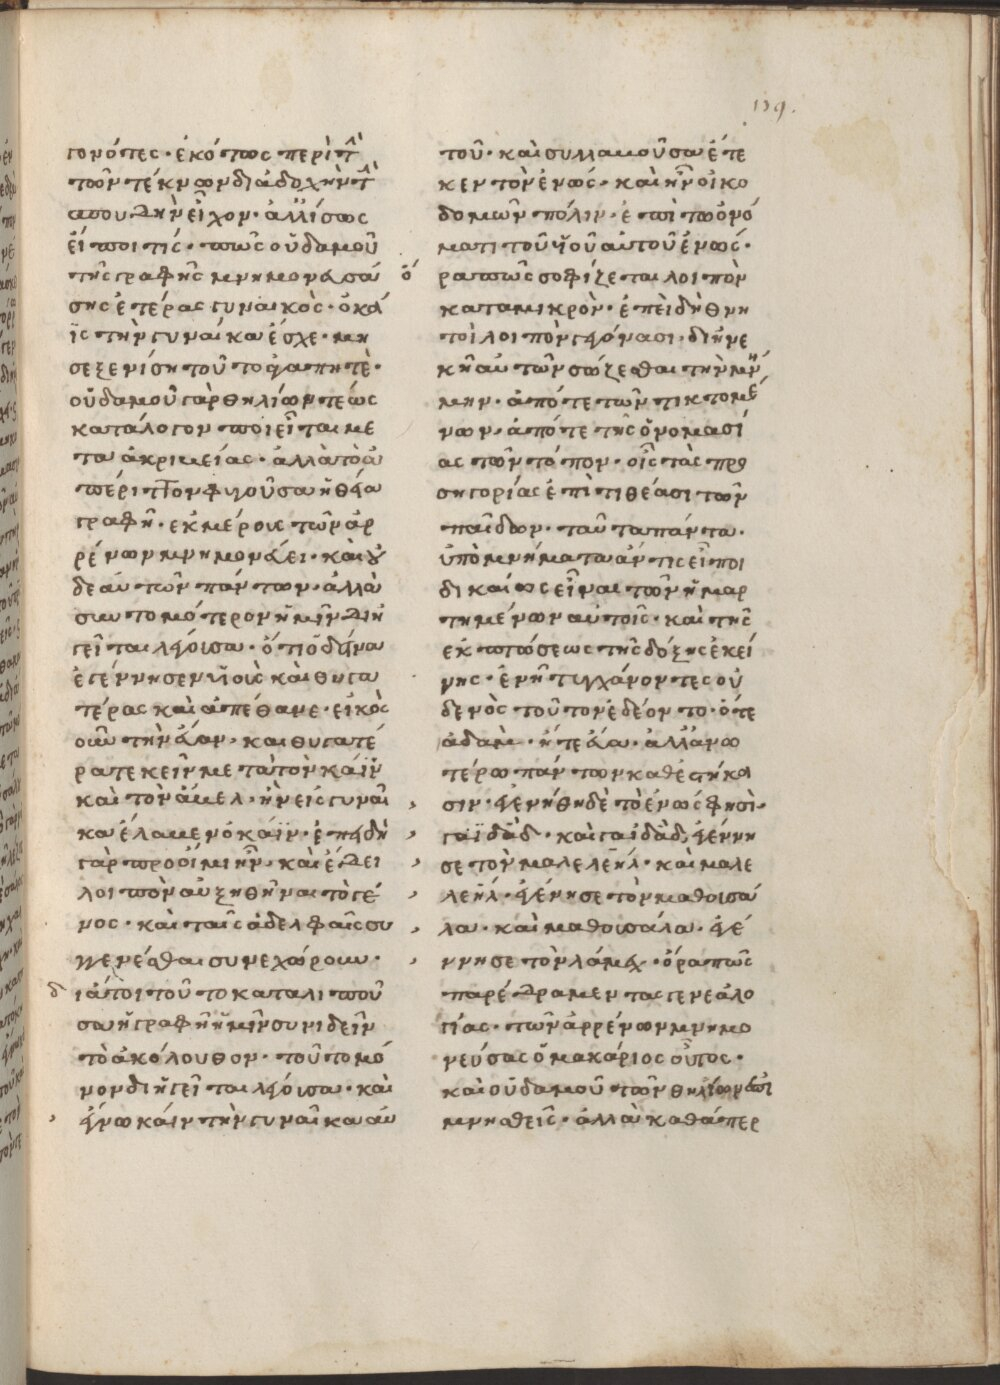 139.
γονότες· εἰκότως περὶ τὴν
τῶν τέκνων διαδοχὴν τὴν
σπουδὴν εἶχον· ἀλλ' ἴσως
εἴποι τίς· πῶς οὐδαμοῦ
τῆς γραφῆς μνημονευσά
σης ἑτέρας γυναικὸς· ὁ κά
ϊς τὴν γυναῖκα ἔσχε· μὴ
σε ξενίση τοῦτο ἀγαπητὲ·
οὐδαμοῦ γὰρ θηλίων τέως
κατάλογον ποιεῖται με
τα ἀκριβείας· ἀλλὰ τὸ
περιττὸν φυγοῦσα ἡ θεία
γραφὴ· ἐκ μέρους τῶν ἀρ
ρένων μνημονεύει· καὶ οὐ
δε αὐτῶν πάντων· ἀλλὰ
συντομότερον ἡμῖν διη
γεῖται λέγουσα· ὅτι ὁ δεῖνα
ἐγέννησεν υἱοὺς καὶ θυγα
τέρας καὶ ἀπέθανε· εἰκὸς
οὖν τὴν εὔαν· καὶ θυγατέ
ρα τεκεῖν μετὰ τὸν κάϊν
καὶ τὸν ἄβελ· ἣν εἰς γυναῖ
κα ἔλαβεν ὁ κάϊν· ἐπειδὴ
γὰρ προοίμι ἦν· καὶ ἔδει
λοιπὸν αὐξηθῆναι τὸ γέ
νος· καὶ ταῖς ἀδελφαῖς συ
γγενέσθαι συνεχώρουν·
διάτοι τοῦτο καταλιποῦ
σα ἡ γραφὴ ἡμῖν συνιδεῖν
τὸ ἀκόλουθον· τοῦτο μό
νον διηγεῖται λέγουσα· καὶ
ἔγνω κάϊν τὴν γυναῖκα αὐ
τοῦ· καὶ συλλαβοῦσα ἔτε
κεν τὸν ἐνώς· καὶ ἦν οἰκο
δομῶν πόλιν· ἐπὶ τῷ ὀνό
ματι τοῦ υἱοῦ αὐτοῦ ἐνώς·
ὅρα πῶς σοφίζεται λοιπὸν
κατα μικρὸν· ἐπειδὴ θνη
τοὶ λοιπὸν γεγόνασι· διηνε
κῆ αὐτῶν σώζεσθαι τὴν μνή
μην· ἀπό τε τῶν τικτομέ
νων· ἀπό τε τῆς ὀνομασί
ας τῶν τόπων· οἷς τὰς προ
σηγορίας ἐπιτιθέασι τῶν
παίδων· ταῦτα πάντα·
ὑπομνήματα ἄν τις εἴποι
δικαίως εἶναι τῶν ἡμαρ
τημένων αὐτοῖς· καὶ τῆς
ἐκπτώσεως τῆς δόξης ἐκεί
νης· ἐν ἧ τυγχάνοντες οὐ
δενὸς τούτων ἐδέοντο· ὅτε
ἀδὰμ· ἥ τε εὔα· ἀλλ' ἀνω
τέρω πάντων καθεστήκα
σιν· ἐγενήθη δὲ τὸ ἐνὼς φησὶ·
γαϊδὰδ· καὶ γαϊδὰδ, ἐγέννη
σε τὸν μαλελεὴλ· καὶ μαλε
λεὴλ· ἐγέννησε τὸν μαθουσά
λα· καὶ μαθουσάλα· ἐγέ
ννησε τὸν λάμεχ· ὅρα πῶς
παρέδραμεν τας γενεαλο
γίας· τῶν ἀρρένων μνημο
νεύσας ὁ μακάριος οὗτος·
καὶ οὐδαμοῦ τῶν θηλίων ἐπι
μνησθεὶς· ἀλλὰ καθάπερ